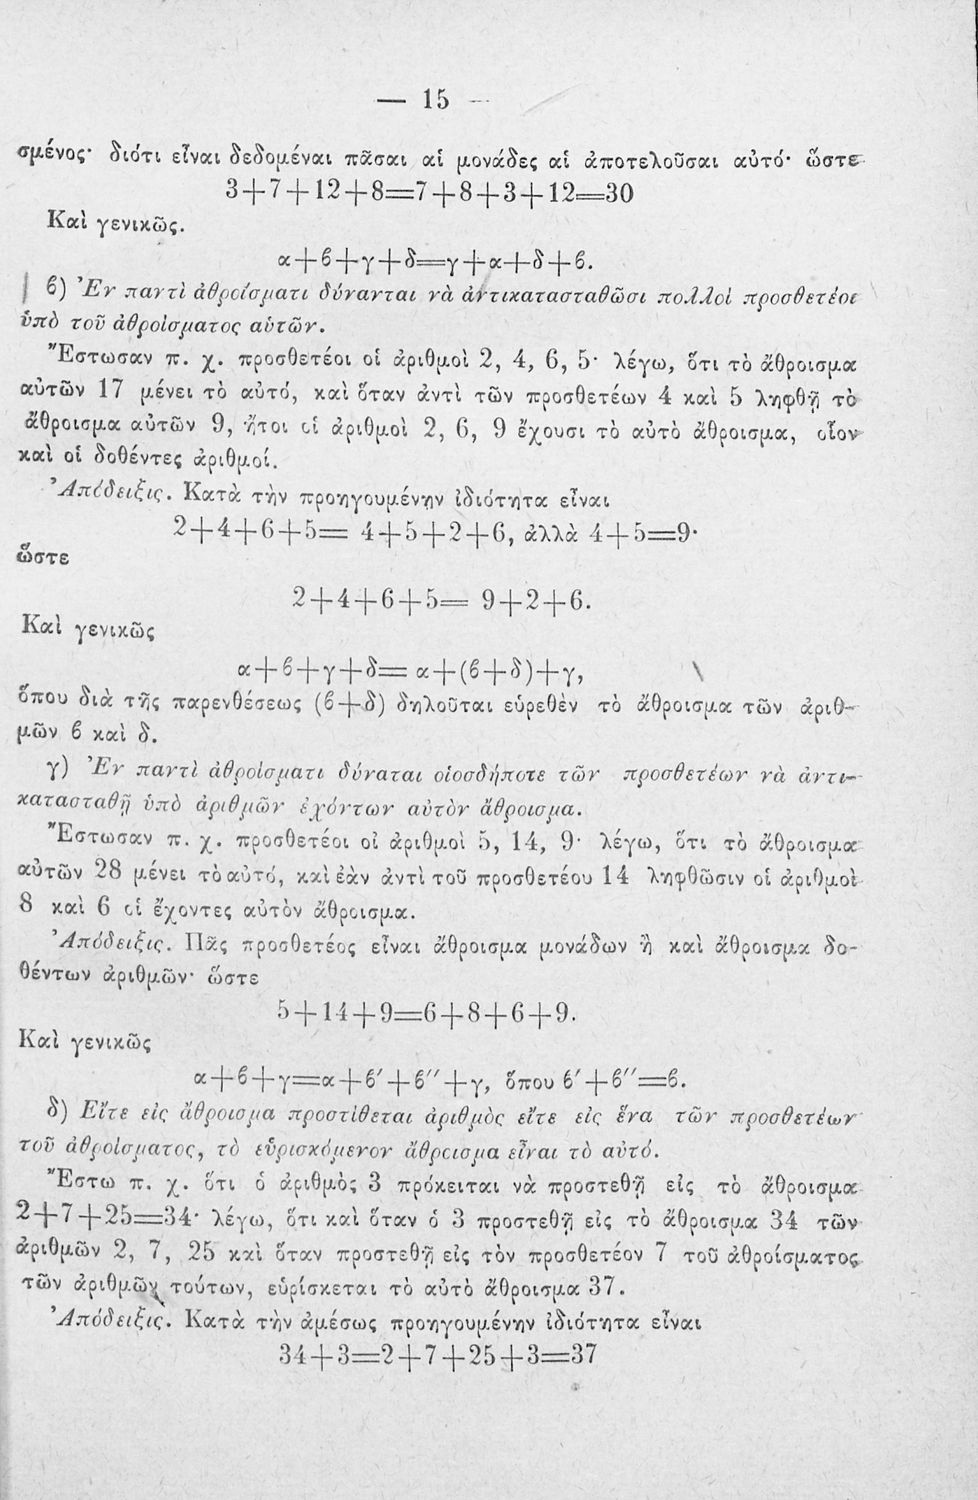 — 15 —
σμένος· διότι εἶναι δεδομέναι πᾶσαι αἱ μονάδες αἱ ἀποτελοῦσαι αὐτό· ὥστε
3+7+12+8=7+8+3+12=30
Καὶ γενικῶς.
α+ϐ+γ+δ=γ+α+δ+ϐ.
ϐ) Ἐν παντὶ ἀθροίσματι δύνανται νὰ ἀντικατασταθῶσι πολλοὶ προσθετέοι
ὑπὸ τοῦ ἀθροίσματος αὐτῶν.
Ἔστωσαν π. χ. προσθετέοι οἱ ἀριθμοὶ 2, 4, 6, 5· λέγω, ὅτι τὸ ἄθροισμα
αὐτῶν 17 μένει τὸ αὐτό, καὶ ὅταν ἀντὶ τῶν προσθετέων 4 καὶ 5 ληφθῇ τὸ
ἄθροισμα αὐτῶν 9, ἤτοι οἱ ἀριθμοὶ 2, 6, 9 ἔχουσι τὸ αὐτὸ ἄθροισμα, οἷον
καὶ οἱ δοθέντες ἀριθμοί.
Ἀπόδειξις. Κατὰ τὴν προηγουμένην ἰδιότητα εἶναι
2+4+6+5= 4+5+2+6, ἀλλὰ 4+5=9·
ὥστε
2+4+6+5= 9+2+6.
Καὶ γενικῶς
α+ϐ+γ+δ= α+(ϐ+δ)+γ,
ὅπου διὰ τῆς παρενθέσεως (ϐ+δ) δηλοῦται εὑρεθὲν τὸ ἄθροισμα τῶν ἀριθ-
μῶν ϐ καὶ δ.
γ) Ἐν παντὶ ἀθροίσματι δύναται οἱοσδήποτε τῶν προσθετέων νὰ ἀντι-
κατασταθῇ ὑπὸ ἀριθμῶν ἐχόντων αὐτὸν ἄθροισμα.
Ἔστωσαν π. χ. προσθετέοι οἱ ἀριθμοὶ 5, 14, 9· λέγω, ὅτι τὸ ἄθροισμα
αὐτῶν 28 μένει τὸ αὐτό, καὶ ἐὰν ἀντὶ τοῦ προσθετέου 14 ληφθῶσιν οἱ ἀριθμοὶ
8 καὶ 6 οἱ ἔχοντες αὐτὸν ἄθροισμα.
Ἀπόδειξις. Πᾶς προσθετέος εἶναι ἄθροισμα μονάδων ἢ καὶ ἄθροισμα δο-
θέντων ἀριθμῶν· ὥστε
5+14+9=6+8+6+9.
Καὶ γενικῶς
α+ϐ+γ=α+ϐ′+ϐ″+γ, ὅπου ϐ′+ϐ″=ϐ.
δ) Εἴτε εἰς ἄθροισμα προστίθεται ἀριθμὸς εἴτε εἰς ἕνα τῶν προσθετέων
τοῦ ἀθροίσματος, τὸ εὑρισκόμενον ἄθροισμα εἶναι τὸ αὐτό.
Ἔστω π. χ. ὅτι ὁ ἀριθμὸς 3 πρόκειται νὰ προστεθῇ εἰς τὸ ἄθροισμα
2+7+25=34· λέγω, ὅτι καὶ ὅταν ὁ 3 προστεθῇ εἰς τὸ ἄθροισμα 34 τῶν
ἀριθμῶν 2, 7, 25 καὶ ὅταν προστεθῇ εἰς τὸν προσθετέον 7 τοῦ ἀθροίσματος
τῶν ἀριθμῶν τούτων, εὑρίσκεται τὸ αὐτὸ ἄθροισμα 37.
Ἀπόδειξις. Κατὰ τὴν ἀμέσως προηγουμένην ἰδιότητα εἶναι
34+3=2+7+25+3=37